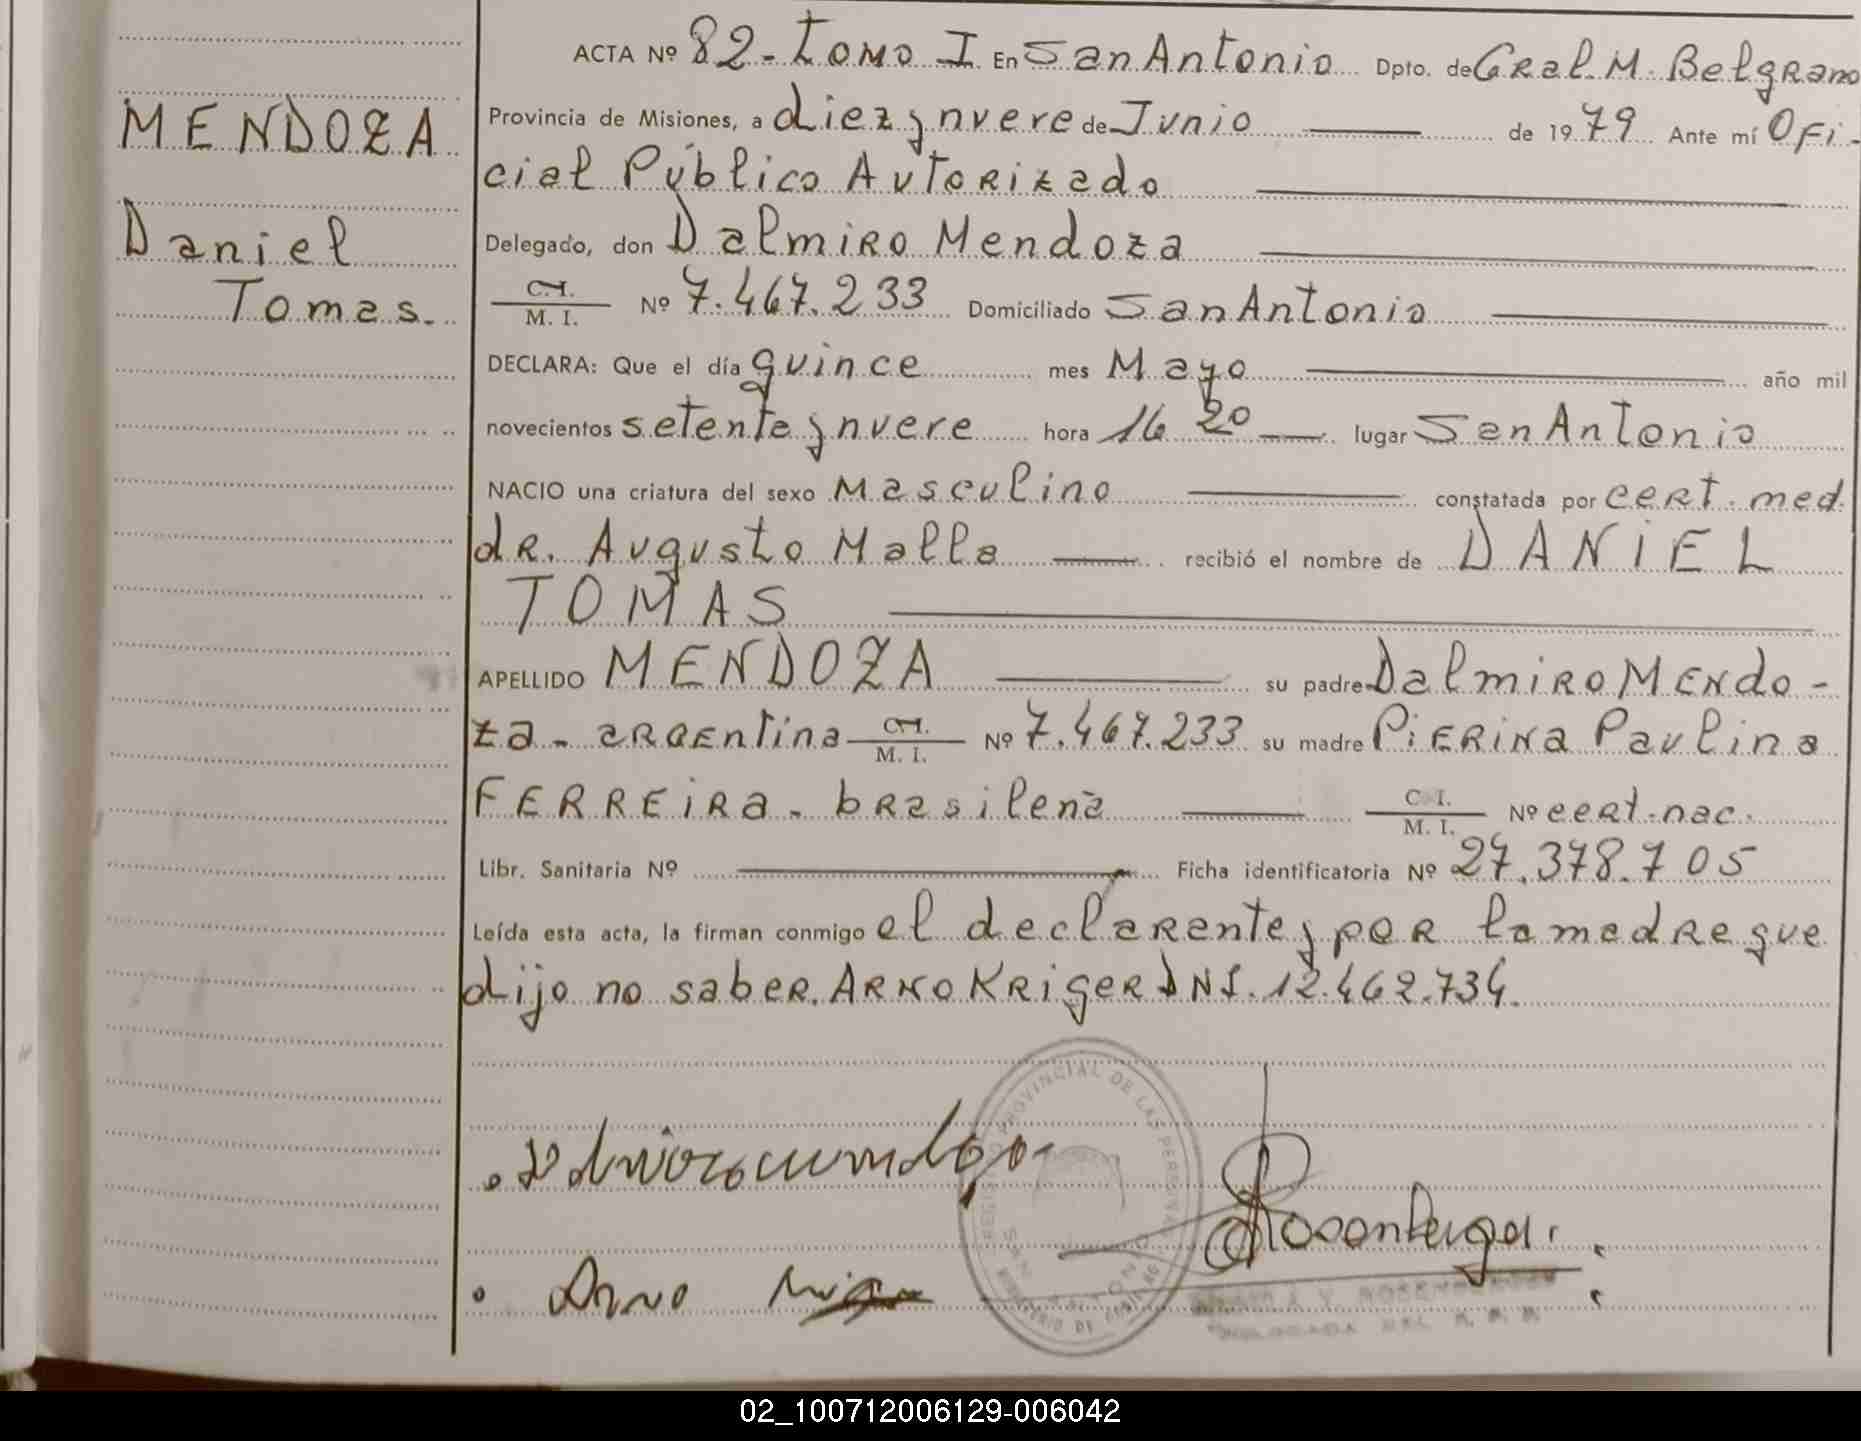 ACTA Nº 82 - Tomo I En San Antonio Dpto. de Gral. M. Belgrano
MENDOZA
Provincia de Misiones, a diez y nueve de Junio de 1979 Ante mí Ofi-
cial Público Autorizado
Daniel
Delegado, don Dalmiro Mendoza
Tomas.
C.I. M. I. Nº 7.467.233 Domiciliado San Antonio
DECLARA: Que el día quince mes Mayo año mil
novecientos setenta y nueve hora 16 20 lugar San Antonio
NACIO una criatura del sexo Masculino constatada por cert. med.
dR. Augusto Malla recibió el nombre de DANIEL
TOMAS
APELLIDO MENDOZA su padre Dalmiro Mendo-
za - argentina C.I. M. I. Nº 7.467.233 su madre Pierina Paulina
FERREIRA - brasileña C. I. M. I. Nº cert. nac.
Libr. Sanitaria Nº Ficha identificatoria Nº 27.378.705
Leída esta acta, la firman conmigo el declarante y por la madre que
dijo no saber. Arno Kriger DNI. 12.462.734.
REGISTRO PROVINCIAL DE LAS PERSONAS
SAN ANTONIO
MINISTERIO DE GOBIERNO
Arno
02_100712006129-006042